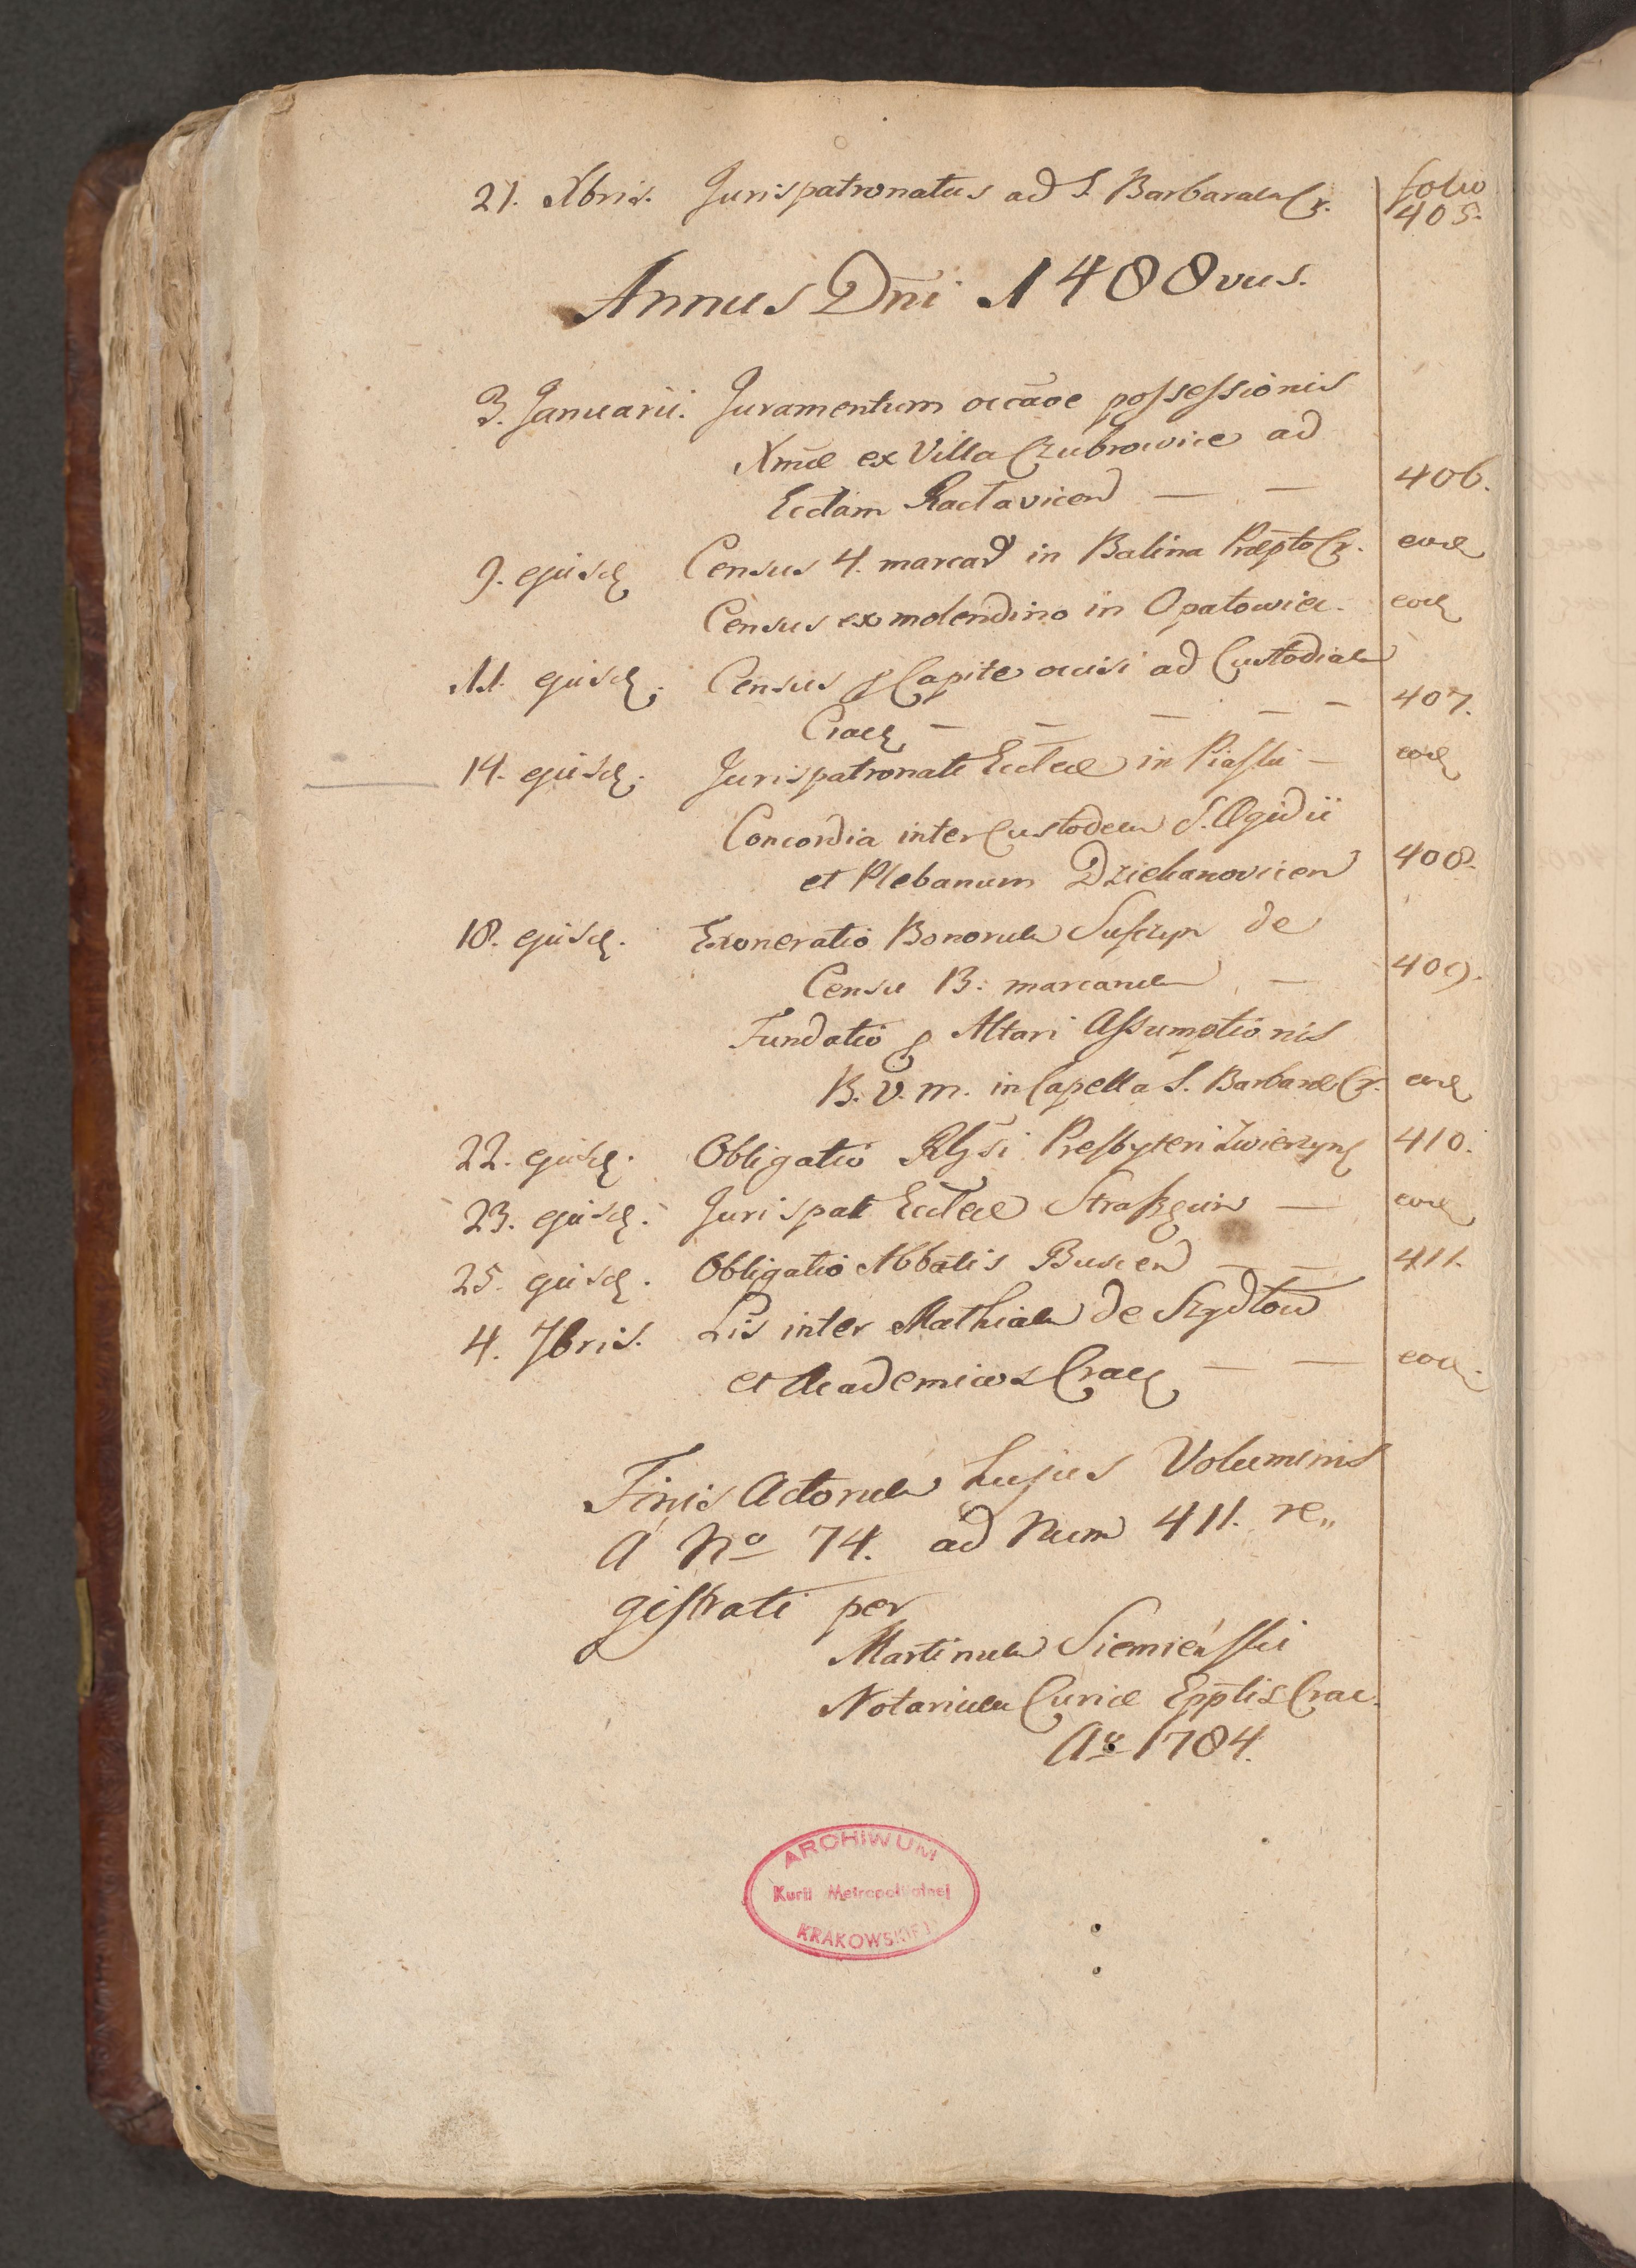 folio
21. Xbris. Jurispatronatus ad S. Barbaram Cr. 405.
Annus Dni 1488vus.
3. Januarii. Juramentum occãoe possessionis
Xmæ ex Villa Czubrowice ad
Ecclam Ractavicen — — 406.
9. ejusd. Census 4. marcar in Balina Præpto Cr. eod
Census ex molendino in Opatowiec. eod
11. ejusd. Census p Capite occisi ad Custodiam
Crac — — — — — 407.
14. ejusd. Jurispatronati Ecclæ in Piaski — eod
Concordia inter Custodem S. Ægidii
et Plebanum Dziekanovicen 408.
18. ejusd. Exoneratio Bonorum Suszyn de
Censu 13. marcarum — 409.
Fundatio p Altari Assumptionis
B. V. M. in Capella S. Barbaræ Cr. eod
22. ejusd. Obligatio Rlgsi Presbyteri Zwierzyn 410.
23. ejusd. Jurispat Ecclæ Straszęcin — eod
25. ejusd. Obligatio Abbatis Buscen — — 411.
4. 7bris. Lis inter Mathiam de Szydłow
et Academicos Crac — — eod.
Finis Actorum hujus Voluminis
a No 74. ad Num 411. re„
gistrati per
Martinum Siemieński
Notarium Curiæ Epplis Crac.
Ao 1784.
ARCHIWUM
Kurii Metropolitalnej
KRAKOWSKIEJ